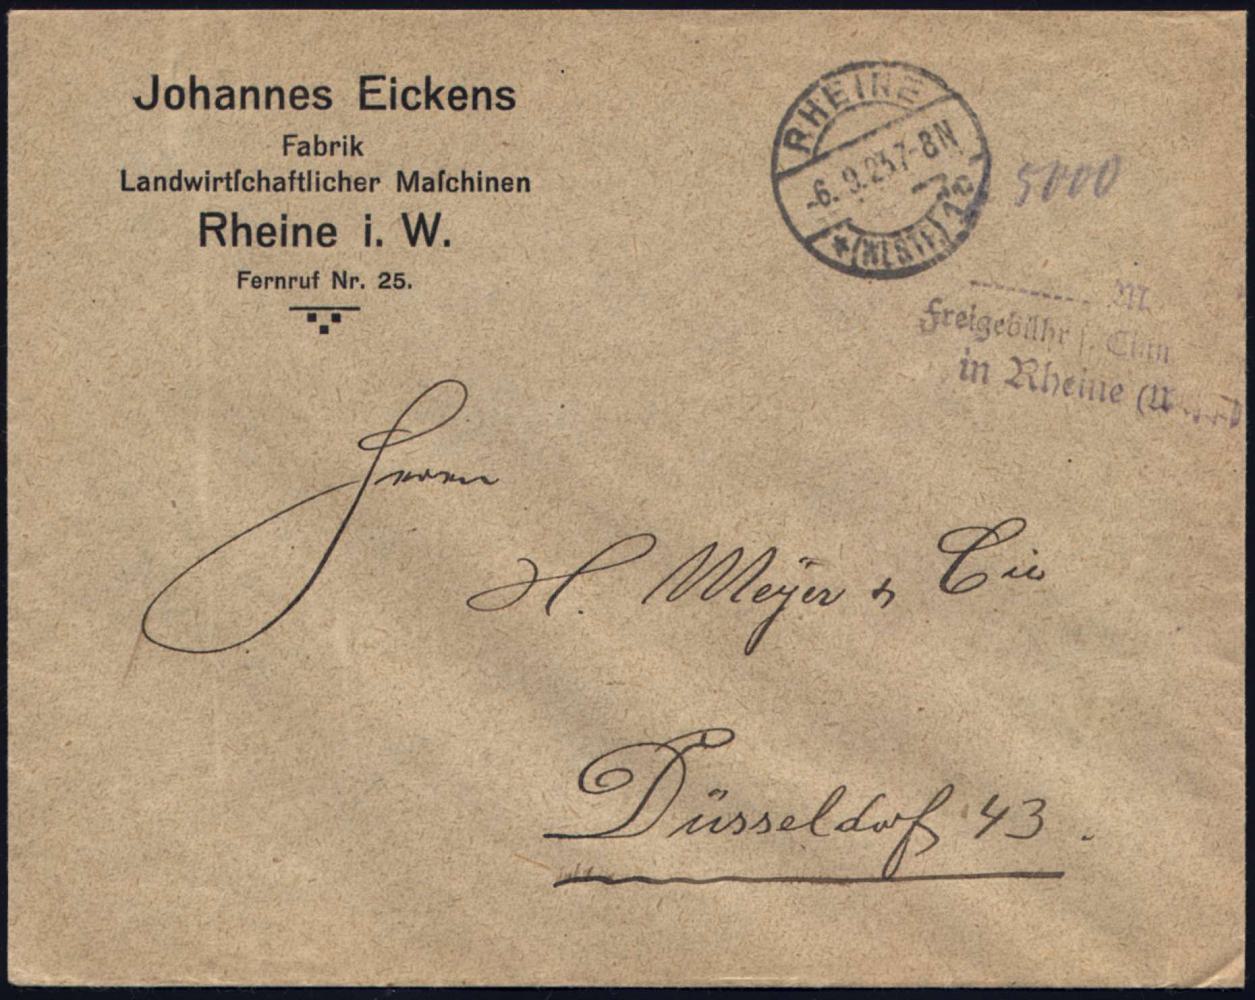 Johannes Eickens
Fabrik
Landwirtſchaftlicher Maſchinen
Rheine i. W.
Fernruf Nr. 25.
RHEINE
-6. 9. 23. 7-8 N
* (WESTF.) 1 c
5000
M.
Freigebühr
in Rheine
Herrn
H. Meyer & Cie
Düsseldorf 43.